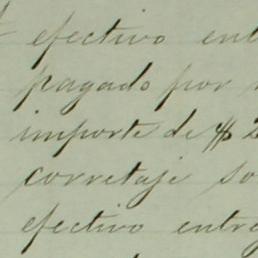 efectivo ent
pagado por
importe de $ 2
corretaje so
efectivo entre